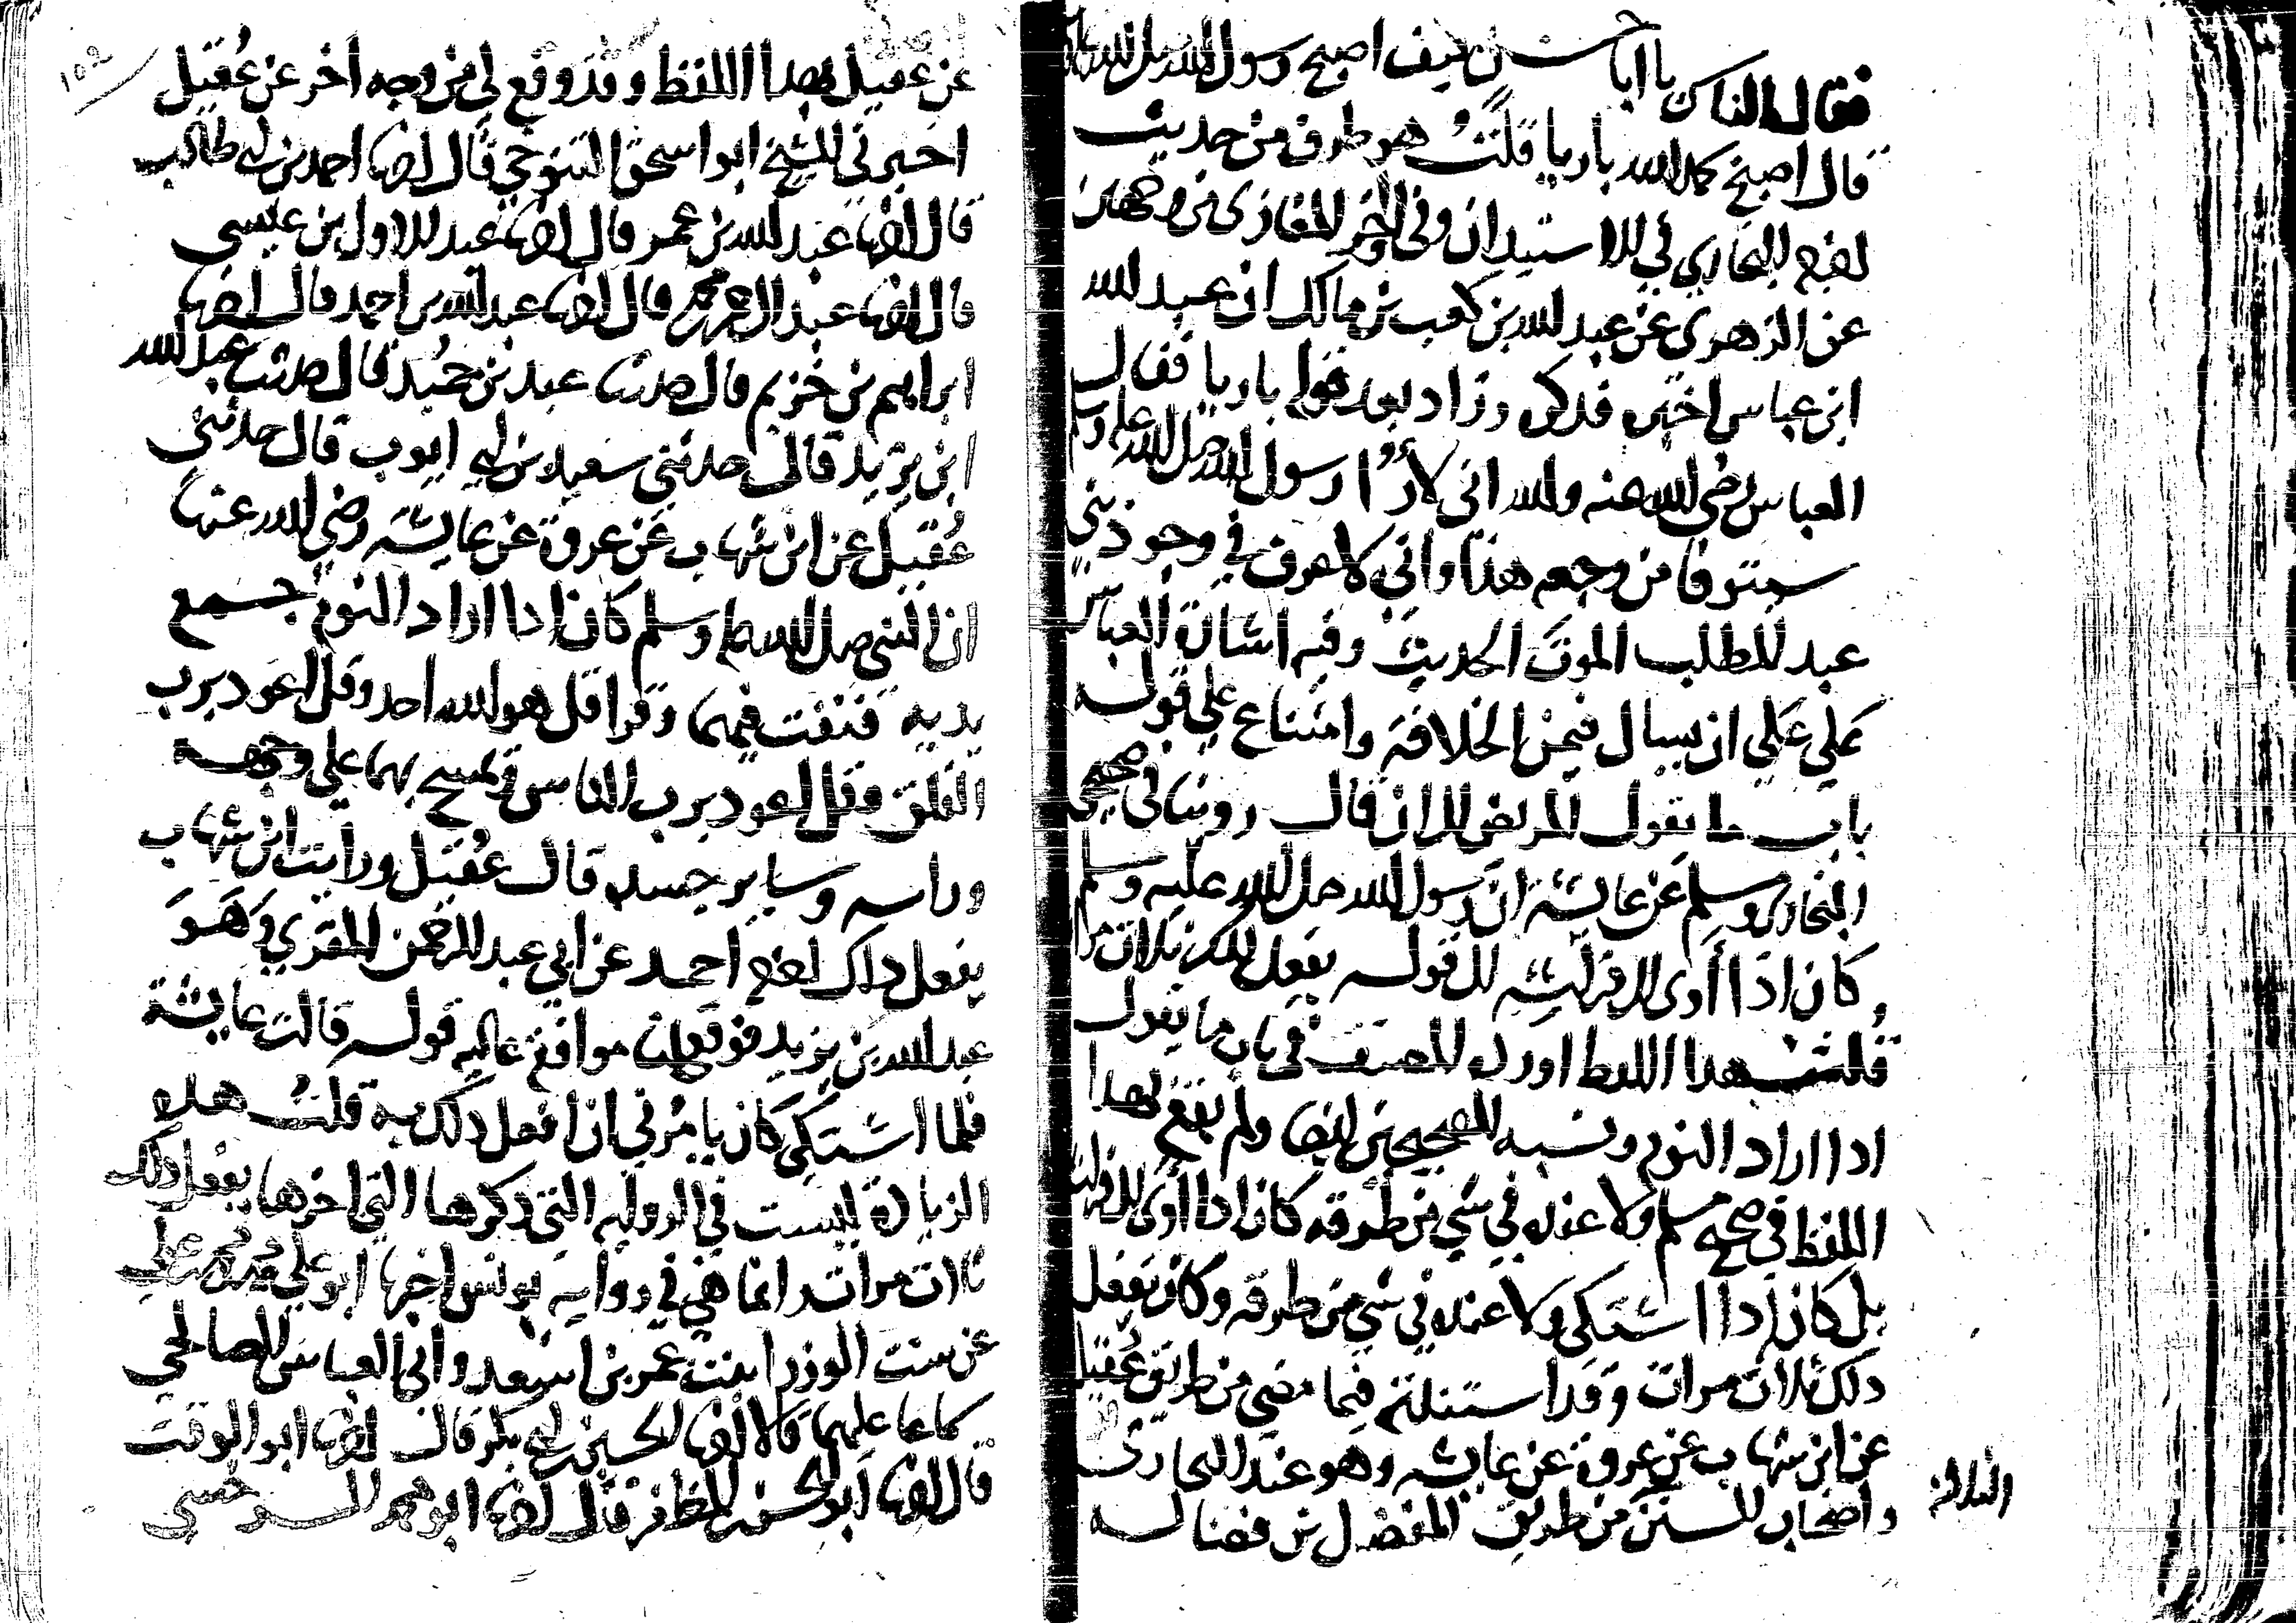 فقال الناس يا ابا حسن كيف اصبح رسول الله صلى الله عليه
قال اصبح بحمد الله باريا قلت هو طرف من حديث
اخرجه البخاري في الاستيذان وفي اخر المغازي من وجهين
عن الزهري عن عبد الله بن كعب بن مالك ان عبد الله
ابن عباس اخبره فذكره وزاد بعد قوله باريا فقال
العباس رضي الله عنه والله اني لارى رسول الله صلى الله عليه وسلم
سيتوفا من وجعه هذا واني لاعرف في وجوه بني
عبد المطلب الموت الحديث وفيه اشارة العباس
على علي ان يسال فيمن الخلافة وامتناع علي قوله
باب ما يقول المريض الى ان قال روينا في صحيحي
البخاري ومسلم عن عايشة ان رسول الله صلى الله عليه وسلم
كان اذا أوى الى فراشه الى قوله يفعل ذلك ثلاث مرات
قلت هذا اللفظ اورده المصنف في باب ما يقول
اذا اراد النوم ونسبه للصحيحين ايضا ولم يقع بهذا
اللفظ في صحيح مسلم ولا عنده في شي من طرقه كان اذا أوى الى فراشه
بل كان اذا اشتكى ولا عنده في شي من طرقه وكان يفعل
ذلك ثلاث مرات وقد استمليته فيما مضى من طريق عقيل
عن ابن شهاب عن عروة عن عايشة وهو عند البخاري
واصحاب السنن من طريق المفضل بن فضاله
الثلاثة
عن عقيل بهذا اللفظ وقد وقع لي من وجه اخر عن عقيل
اخبرني الشيخ ابو اسحق التنوخي قال انا احمد بن ابي طالب
قال انا عبد الله بن عمر قال انا عبد الاول بن عيسى
قال انا عبد الرحمن بن محمد قال انا عبد الله بن احمد قال انا
ابراهيم بن خزيم قال حدثنا عبد بن حميد قال حدثنا عبد الله
ابن يزيد قال حدثني سعيد بن ابي ايوب قال حدثني
عقيل عن ابن شهاب عن عروة عن عايشة رضي الله عنها
ان النبي صلى الله عليه وسلم كان اذا اراد النوم جمع
يديه فنفث فيهما وقرا قل هو الله احد وقل اعوذ برب
الفلق وقل اعوذ برب الناس ثم يمسح بهما على وجهه
وراسه وساير جسده قال عقيل ورايت ابن شهاب
يفعل ذلك اخرجه احمد عن ابي عبد الرحمن المقري وهو
عبد الله بن يزيد فوقع لنا موافقة عالية قوله قالت عايشة
فلما اشتكى كان يامرني ان افعل ذلك به قلت هذه
الزيادة ليست في الرواية التي ذكرها التي اخرها يفعل ذلك
ثلاث مرات وانما هي في رواية يونس اخبرنا ابو علي محمد بن محمد بن علي
عن ست الوزرا بنت عمر بن اسعد وابي العباس الصالحي
سماعا عليهما قالا انا الحسين بن ابي بكر قال انا ابو الوقت
قال انا ابو الحسن بن المظفر قال انا ابو محمد السرخسي
١٥٢